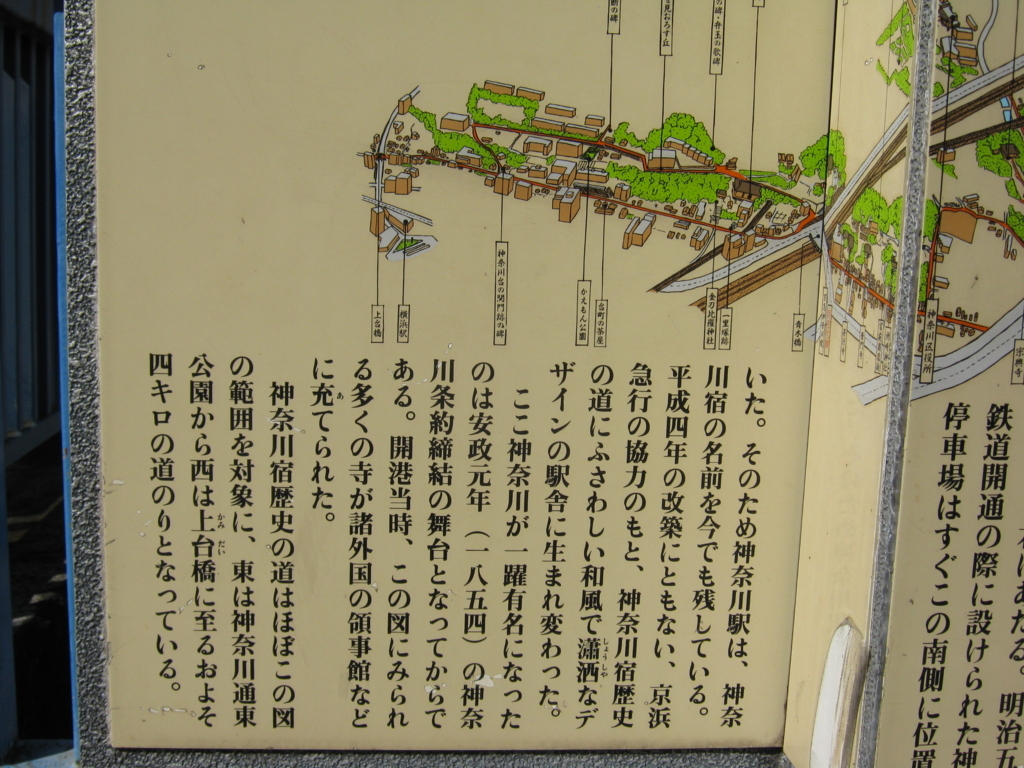 の碑
を見おろす丘
の碑・弁玉の歌碑
上台橋
横浜駅
神奈川台の関門跡の碑
かえもん公園
台町の茶屋
金刀比羅神社
一里塚跡
青木橋
神奈川区役所
鉄道開通の際に設けられた神
停車場はすぐこの南側に位置
にあたる。明治五
いた。そのため神奈川駅は、神奈
川宿の名前を今でも残している。
平成四年の改築にともない、京浜
急行の協力のもと、神奈川宿歴史
の道にふさわしい和風で瀟洒なデ
しょうしゃ
ザインの駅舎に生まれ変わった。
ここ神奈川が一躍有名になった
のは安政元年（一八五四）の神奈
川条約締結の舞台となってからで
ある。開港当時、この図にみられ
る多くの寺が諸外国の領事館など
に充てられた。
あ
神奈川宿歴史の道はほぼこの図
の範囲を対象に、東は神奈川通東
公園から西は上台橋に至るおよそ
かみ だい
四キロの道のりとなっている。